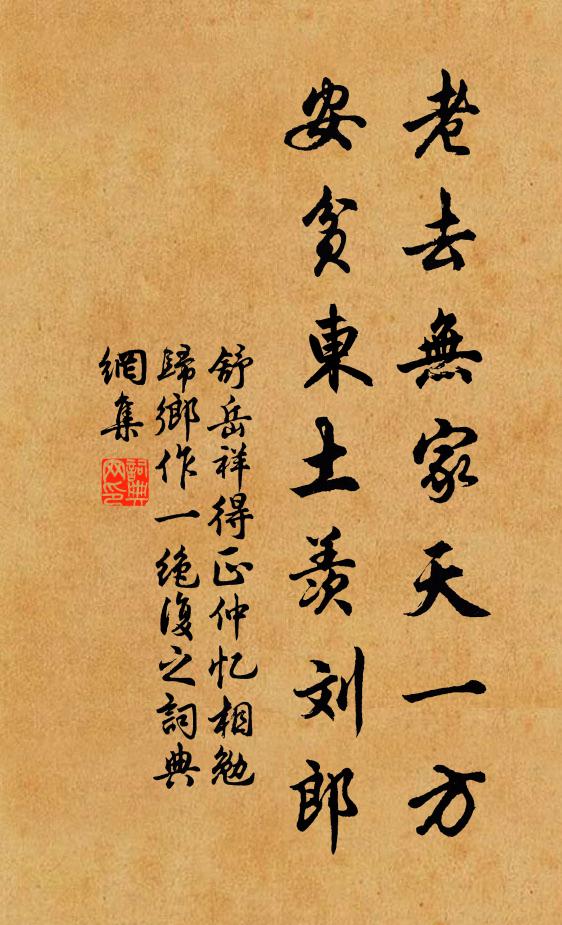 老去無家天一方
安貧東土羨刘郎
舒岳祥得正仲忆相勉
歸鄉作一絶復之詞典
網集
詞典
网印